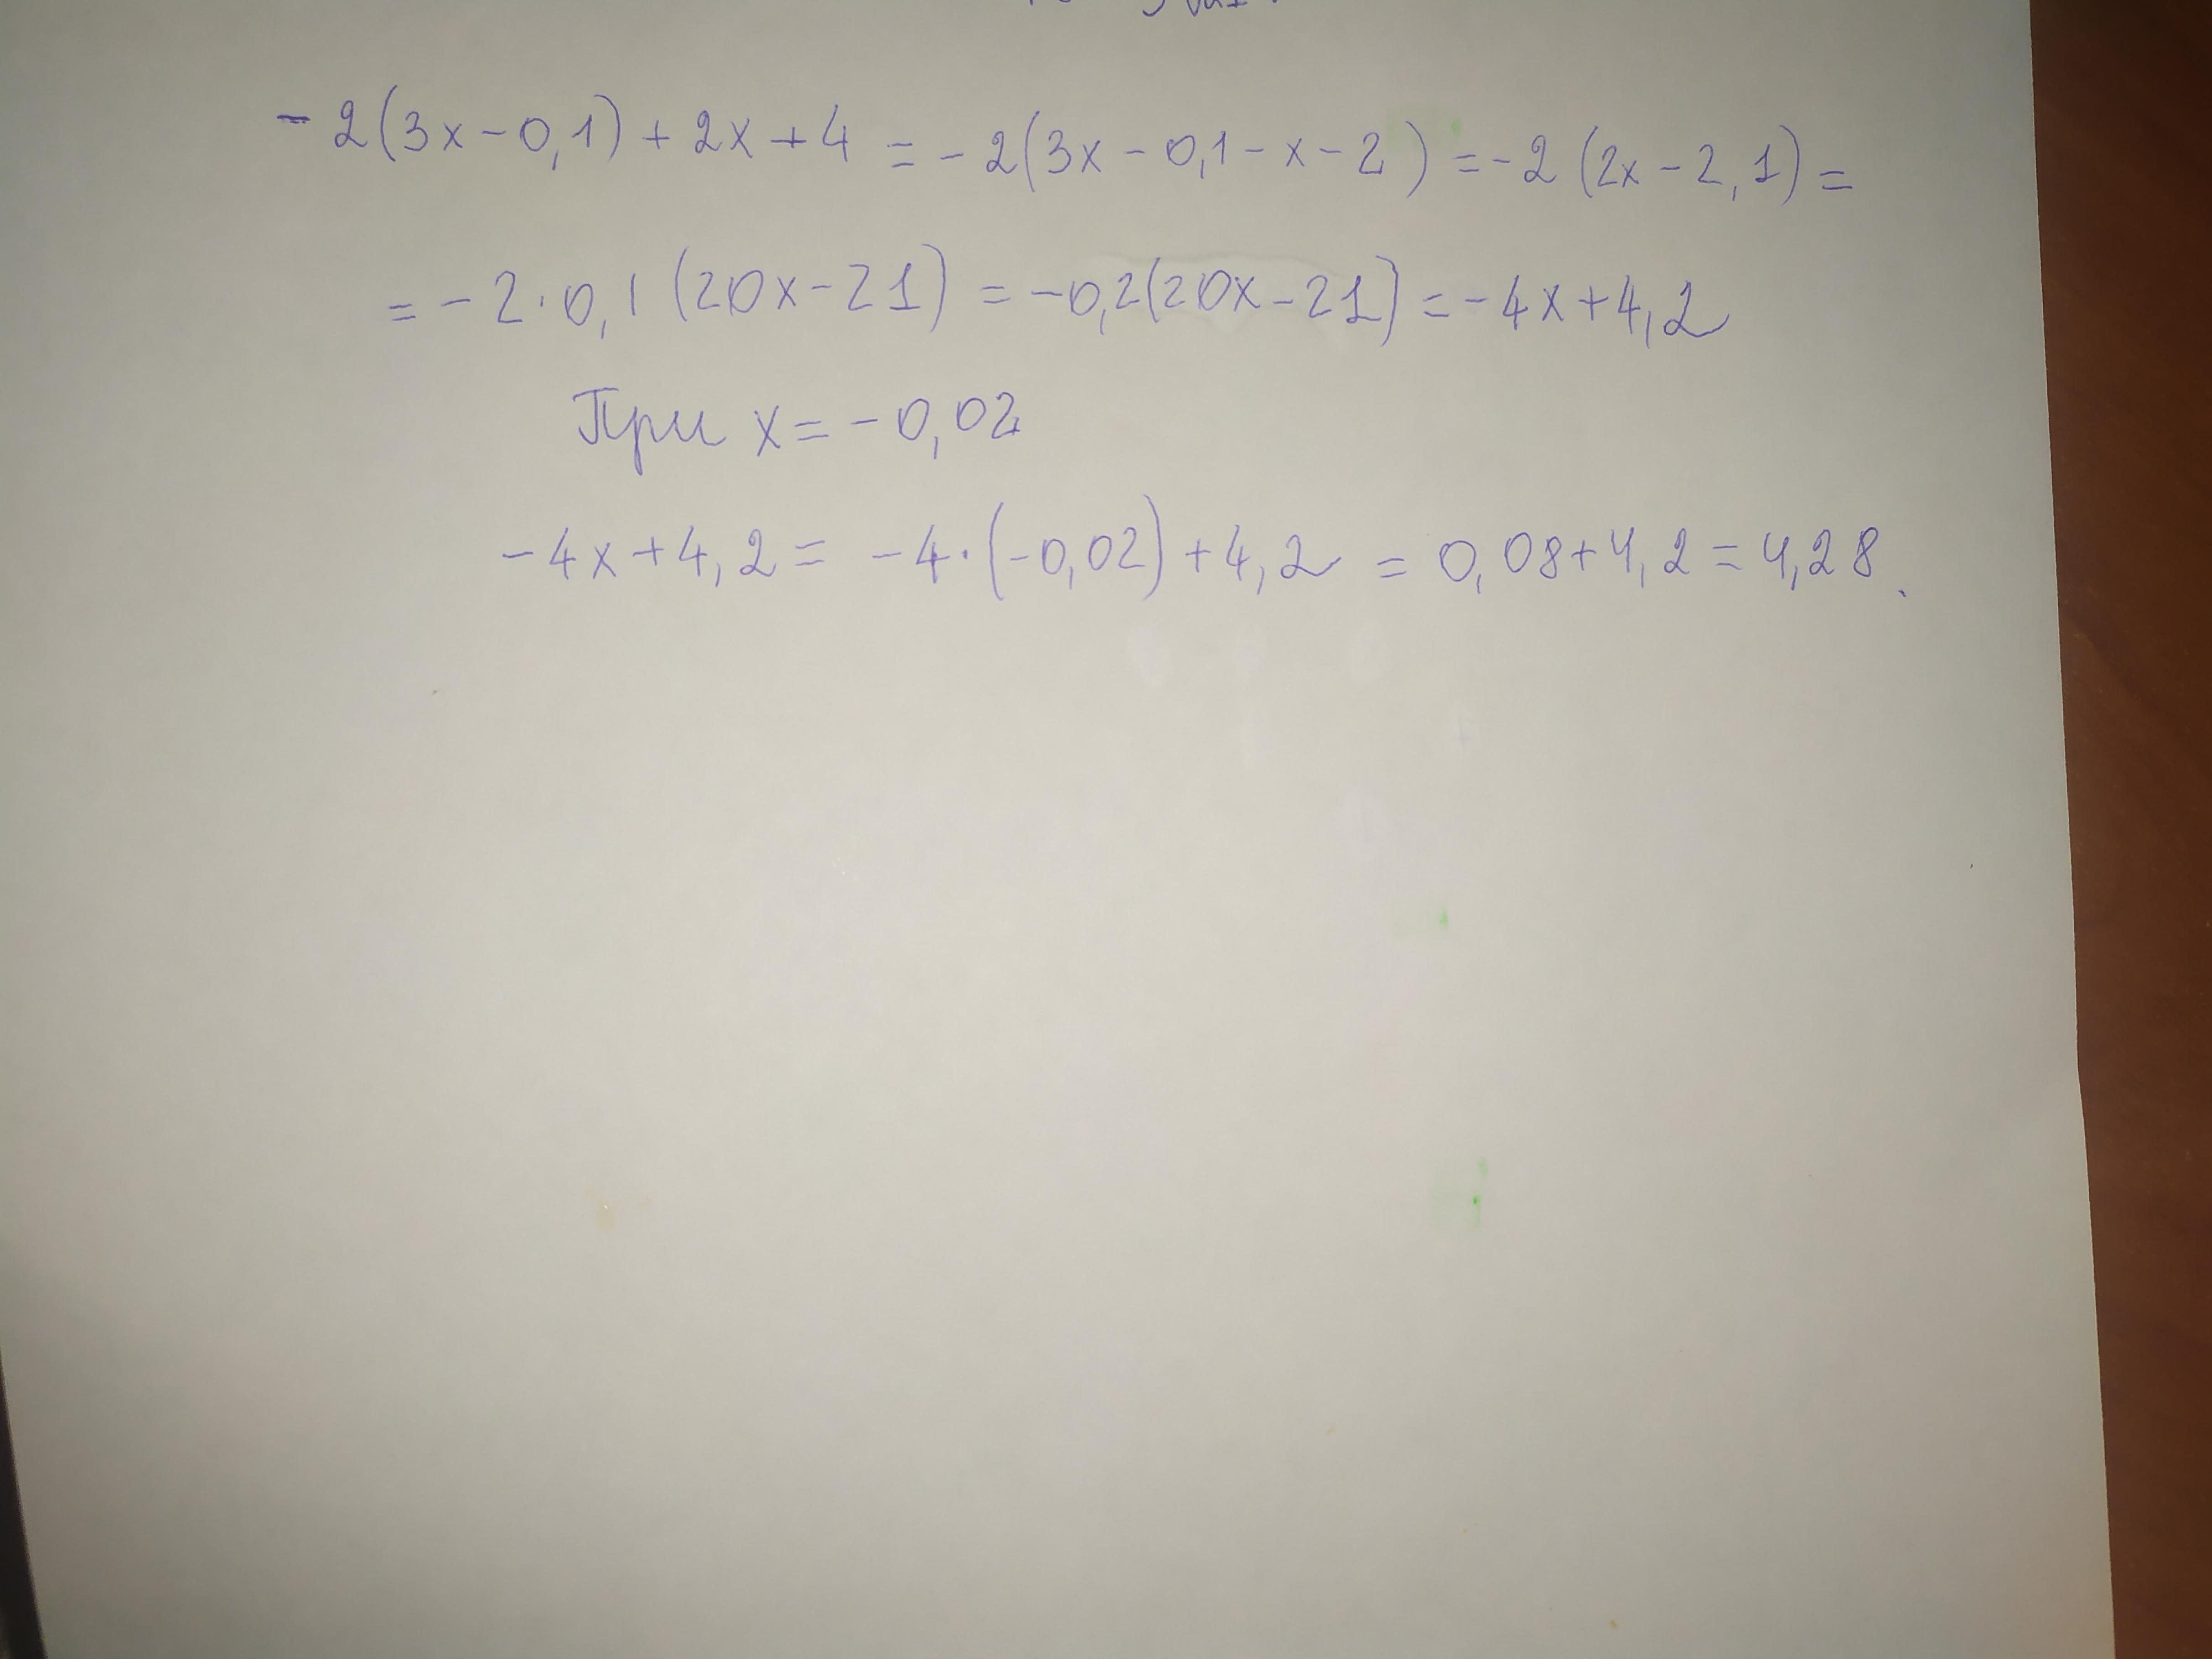 - 2(3x-0,1)+2x+4 = -2(3x-0,1-x-2) = -2(2x-2,1) =
= -2·0,1(20x-21) = -0,2(20x-21) = -4x+4,2
При x = -0,02
-4x+4,2 = -4·(-0,02)+4,2 = 0,08+4,2 = 4,28.